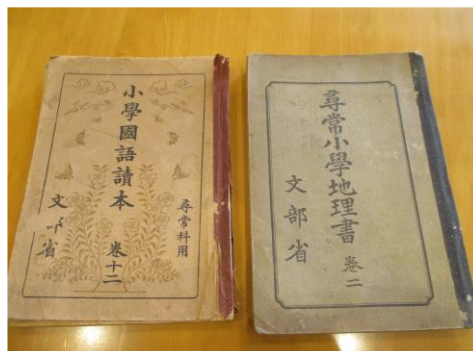 小學國語讀本
尋常科用
卷十二
文部省
尋常小學地理書
卷二
文部省